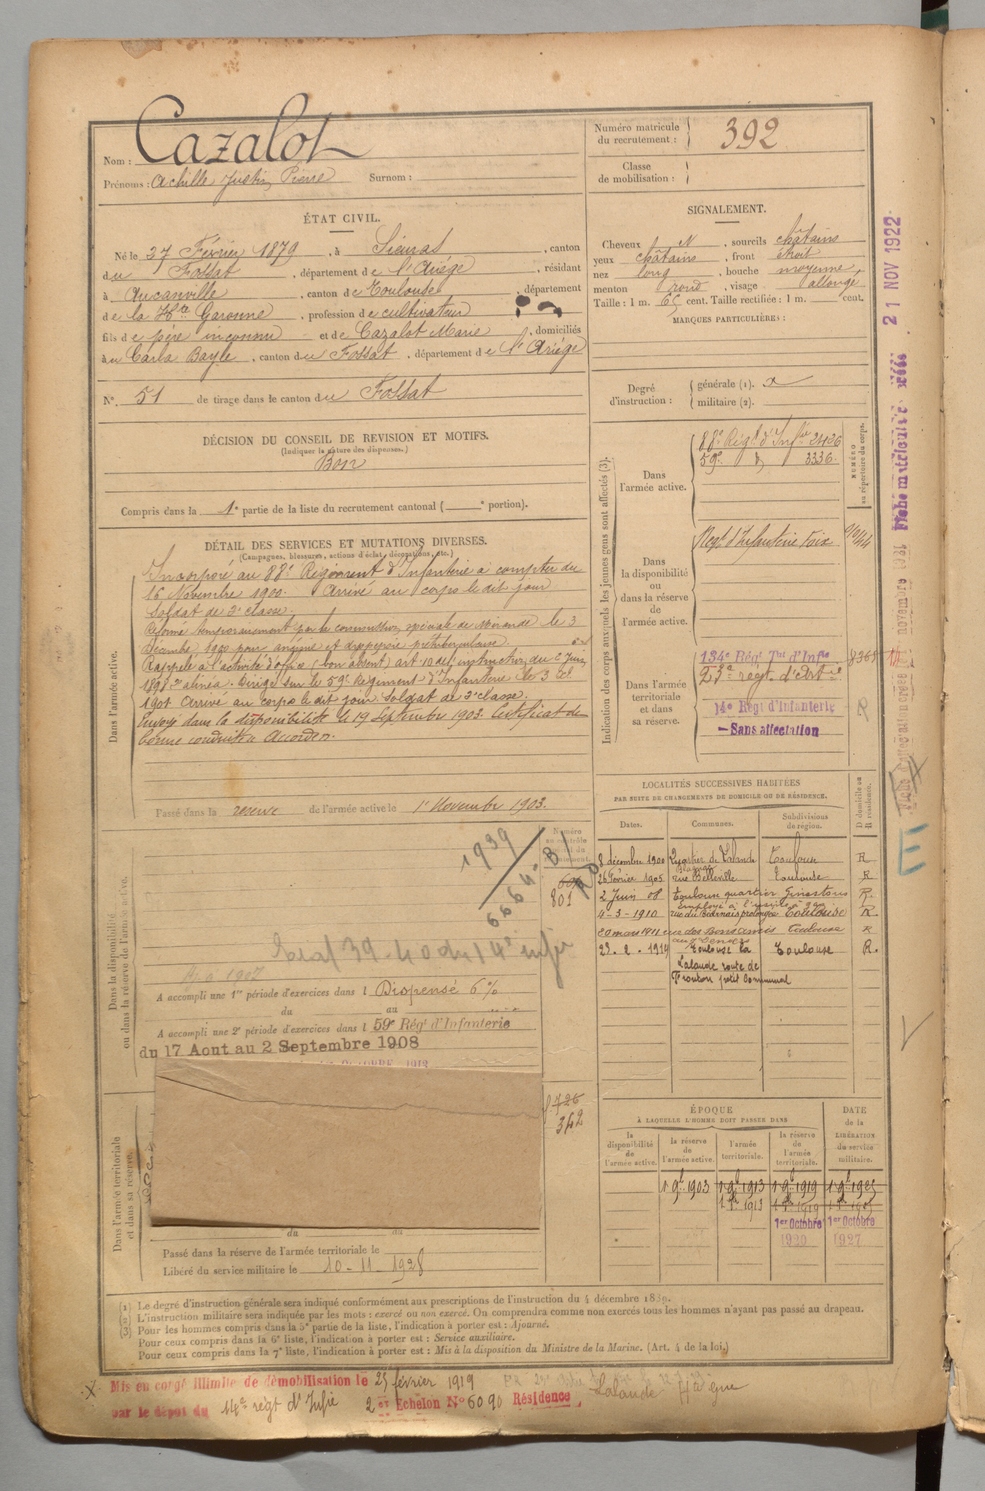 Nom : Cazalot
Prénoms : Achille Justin Pierre Surnom :
Numéro matricule du recrutement : 392
Classe de mobilisation :
ÉTAT CIVIL.
Né le 27 Février 1879, à Siéuras, canton
du Fossat, département de l'Ariège, résidant
à Aucanville, canton de Toulouse, département
de la Hte Garonne, profession de cultivateur
fils de père inconnu et de Cazalot Marie, domiciliés
à Carla Bayle, canton du Fossat, département de l'Ariège
N° 51 de tirage dans le canton du Fossat
DÉCISION DU CONSEIL DE REVISION ET MOTIFS.
(Indiquer la nature des dispenses.)
Bon
Compris dans la 1e partie de la liste du recrutement cantonal ( e portion).
DÉTAIL DES SERVICES ET MUTATIONS DIVERSES.
(Campagnes, blessures, actions d'éclat, décorations, etc.)
Dans l'armée active.
Incorporé au 88e Régiment d'Infanterie à compter du
16 Novembre 1900. Arrivé au corps le dit jour
Soldat de 2e classe.
Réformé temporairement par la commission spéciale de le 3
Décembre 1900 pour
Rappelé à l'activité d'office (bon absent) art 10 de l'instruction du 2 Juin
1898 2e alinéa. Dirigé sur le 59e Régiment d'Infanterie le 3
1901 Arrivé au corps le dit jour soldat de 2e classe.
Envoyé dans la disponibilité le 19 Septembre 1903. Certificat de
bonne conduite Accordé.
Passé dans la réserve de l'armée active le 1 Novembre 1903.
SIGNALEMENT.
Cheveux N, sourcils châtains
yeux châtains, front étroit
nez long, bouche moyenne,
menton rond, visage allongé
Taille : 1 m. 65 cent. Taille rectifiée : 1 m. cent.
MARQUES PARTICULIÈRES :
Degré d'instruction : générale (1).
militaire (2).
Indication des corps auxquels les jeunes gens sont affectés (3).
NUMÉRO au répertoire du corps.
Dans l'armée active.
88e Régt d'Infie 2426
59e d° 3336
Dans la disponibilité ou dans la réserve de l'armée active.
Regt d'Infanterie Foix
Dans l'armée territoriale et dans sa réserve.
134e Rég Tal d'Infie
23e régt d'Artie
14e Régt d'Infanterie
Sans affectation
21 NOV 1922
LOCALITÉS SUCCESSIVES HABITÉES
PAR SUITE DE CHANGEMENTS DE DOMICILE OU DE RÉSIDENCE.
Dates. Communes. Subdivisions de région. D domicile ou R résidence.
8 décembre 1900 Quartier de Lalande Toulouse R
26 février 1905 rue Belleville Toulouse R
2 Juin 08 Toulouse quartier Ginestous R.
4-3-1910 rue du Béarnais prolongée Toulouse R.
20 mars 1911 rue des Bons amis Toulouse R
23.2.1914 Toulouse la Toulouse R.
Lalande route de
Fronton petit Communal
Dans la disponibilité ou dans la réserve de l'armée active.
1939
6664
801
A accompli une 1re période d'exercices dans l Dispensé 6%
du au
A accompli une 2e période d'exercices dans l 59e Régt d'Infanterie
du 17 Aout au 2 Septembre 1908
Dans l'armée territoriale et dans sa réserve.
362
du au
Passé dans la réserve de l'armée territoriale le
Libéré du service militaire le 10-11-1928
ÉPOQUE
À LAQUELLE L'HOMME DOIT PASSER DANS
la disponibilité de l'armée active.
la réserve de l'armée active.
l'armée territoriale.
la réserve de l'armée territoriale.
DATE de la LIBÉRATION du service militaire.
1 9bre 1903 1 9bre 1913 1 9bre 1919 1 9bre 1925
1er Octobre 1920 1er Octobre 1927
(1) Le degré d'instruction générale sera indiqué conformément aux prescriptions de l'instruction du 4 décembre 1889.
(2) L'instruction militaire sera indiquée par les mots : exercé ou non exercé. On comprendra comme non exercés tous les hommes n'ayant pas passé au drapeau.
(3) Pour les hommes compris dans la 5e partie de la liste, l'indication à porter est : Ajourné.
Pour ceux compris dans la 6e liste, l'indication à porter est : Service auxiliaire.
Pour ceux compris dans la 7e liste, l'indication à porter est : Mis à la disposition du Ministre de la Marine. (Art. 4 de la loi.)
Mis en congé illimité de démobilisation le 25 février 1919
par le dépôt du 14e régt d'Infie 2e Echelon N° 6090 Résidence Lalande